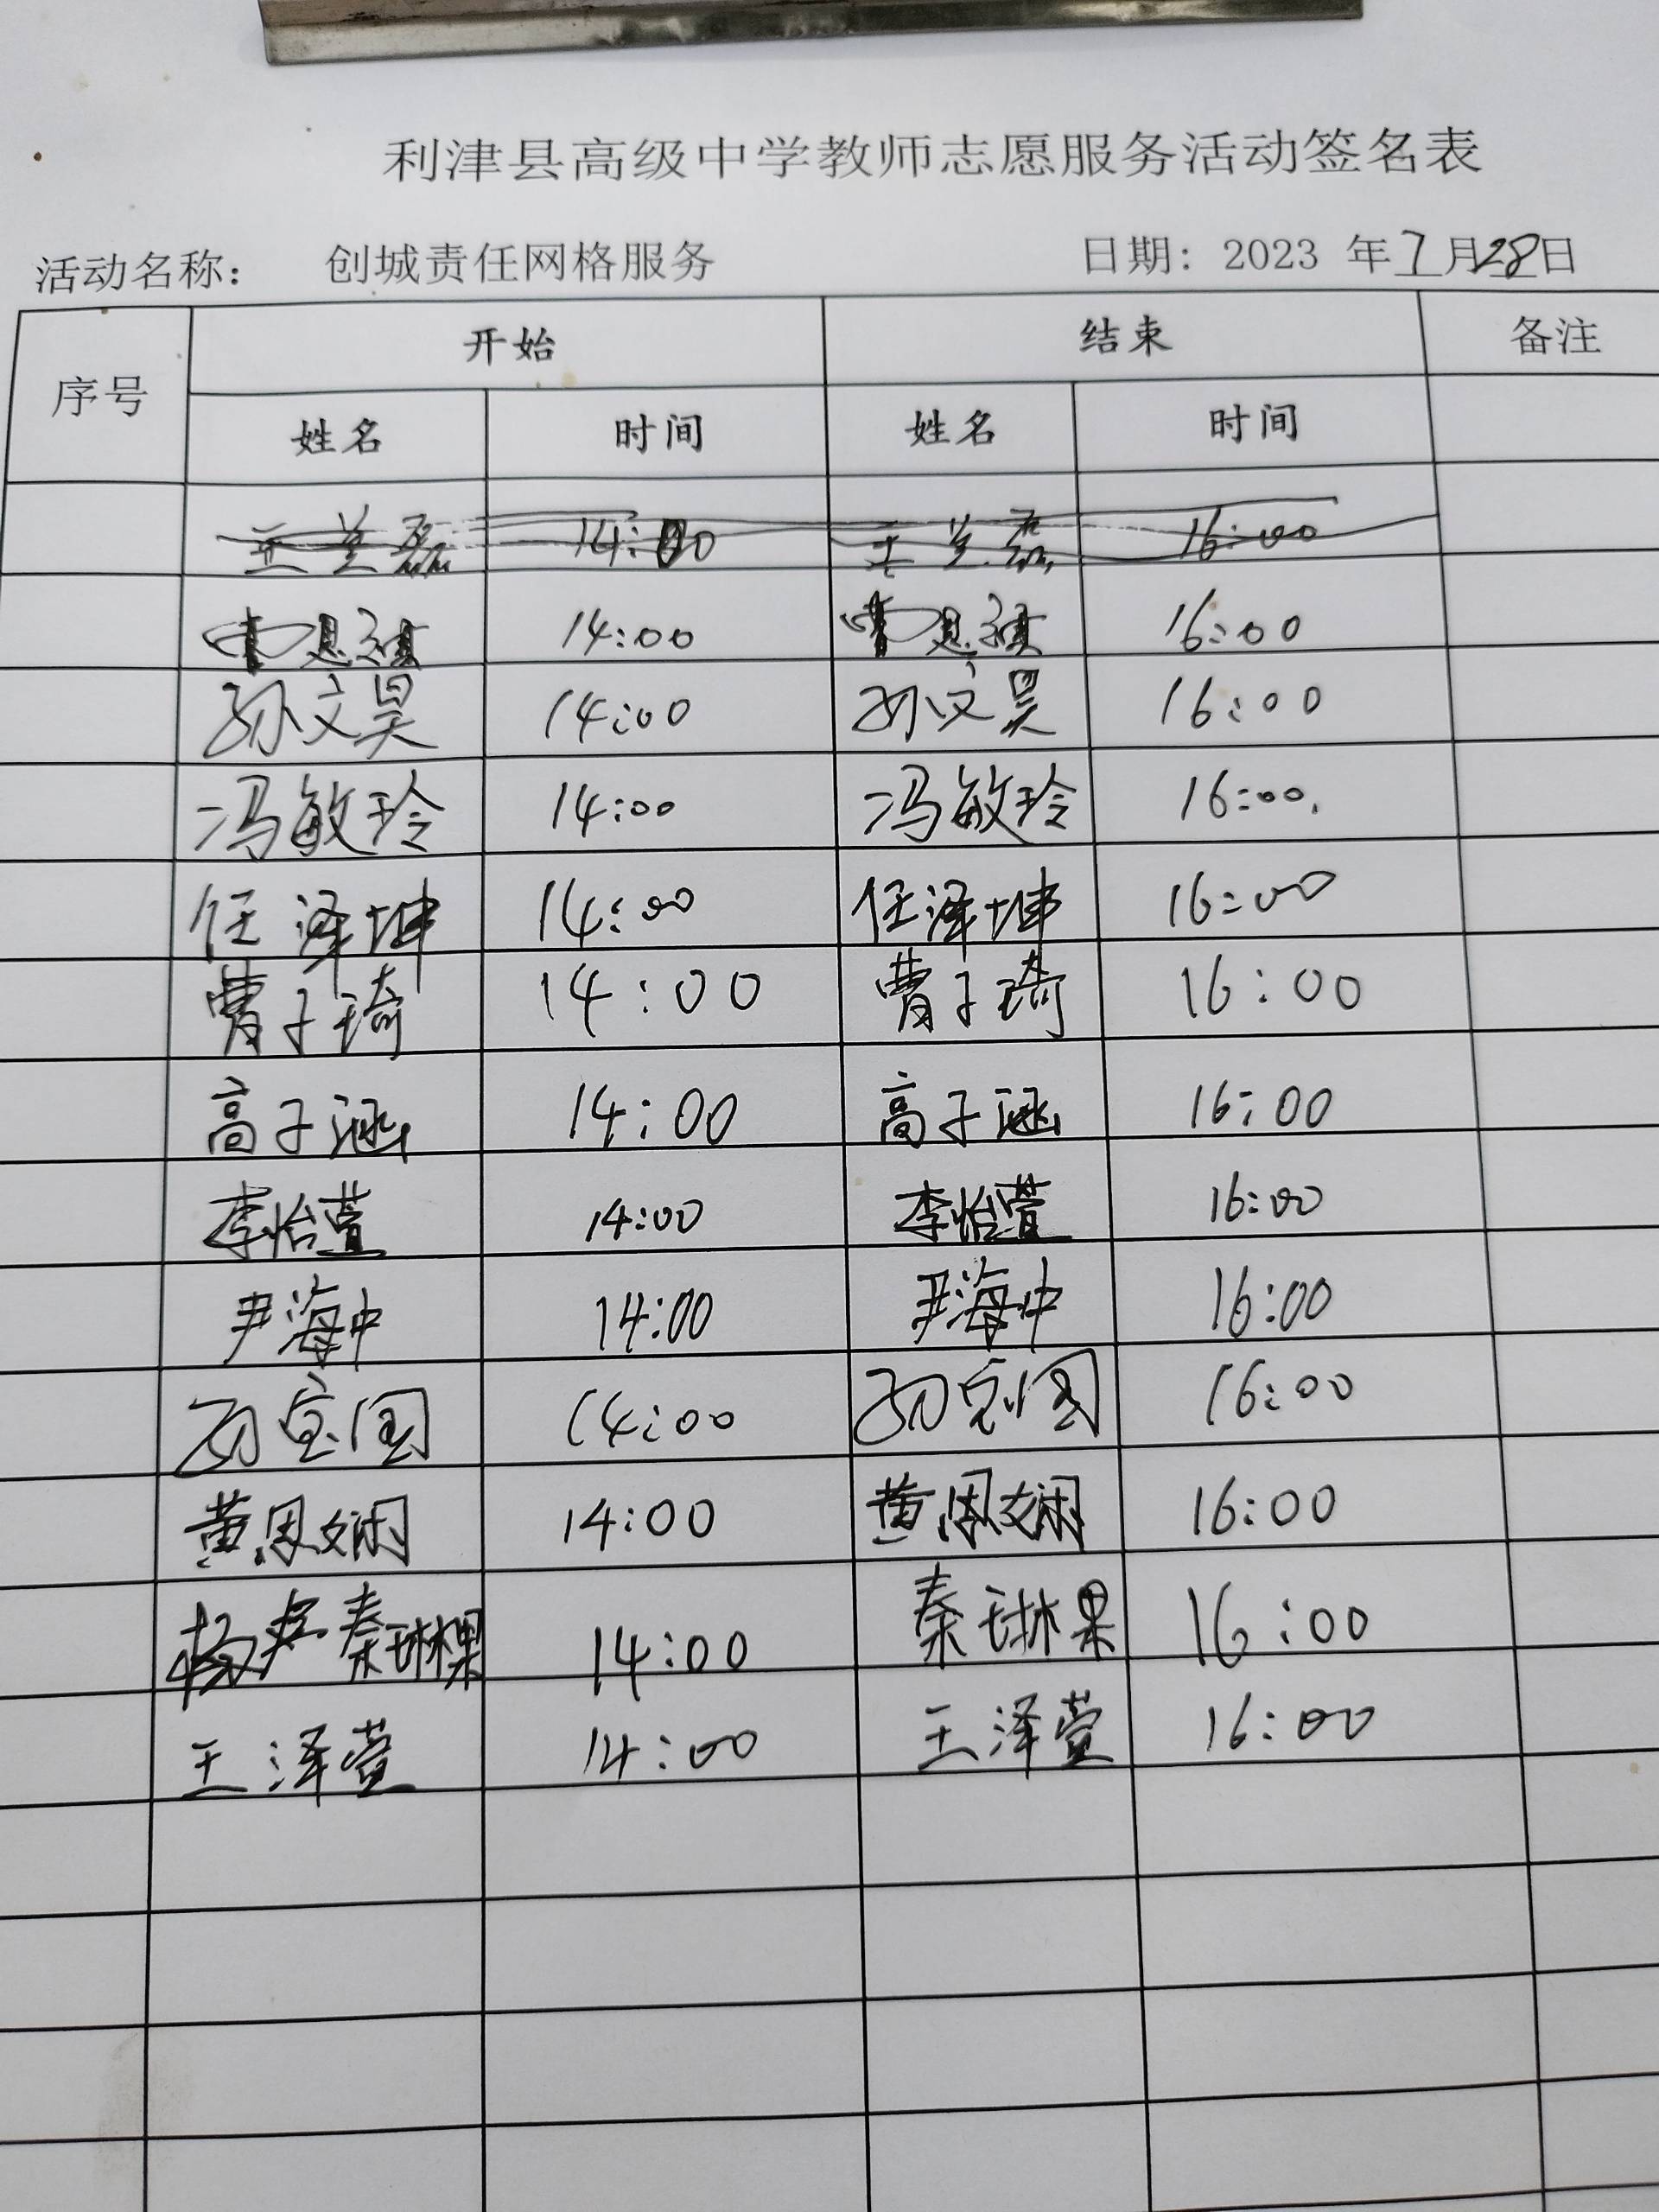 利津县高级中学教师志愿服务活动签名表
活动名称： 创城责任网格服务 日期：2023 年 7 月 28 日
序号 开始 结束 备注
姓名 时间 姓名 时间
14:00 16:00
14:00 16:00
孙文昊 14:00 孙文昊 16:00
冯敏玲 14:00 冯敏玲 16:00
任泽坤 14:00 任泽坤 16:00
曹子琦 14:00 曹子琦 16:00
高子涵 14:00 高子涵 16:00
李怡萱 14:00 李怡萱 16:00
尹海中 14:00 尹海中 16:00
孙宝国 14:00 孙宝国 16:00
黄恩娴 14:00 黄恩娴 16:00
秦琳棵 14:00 秦琳果 16:00
王泽萱 14:00 王泽萱 16:00